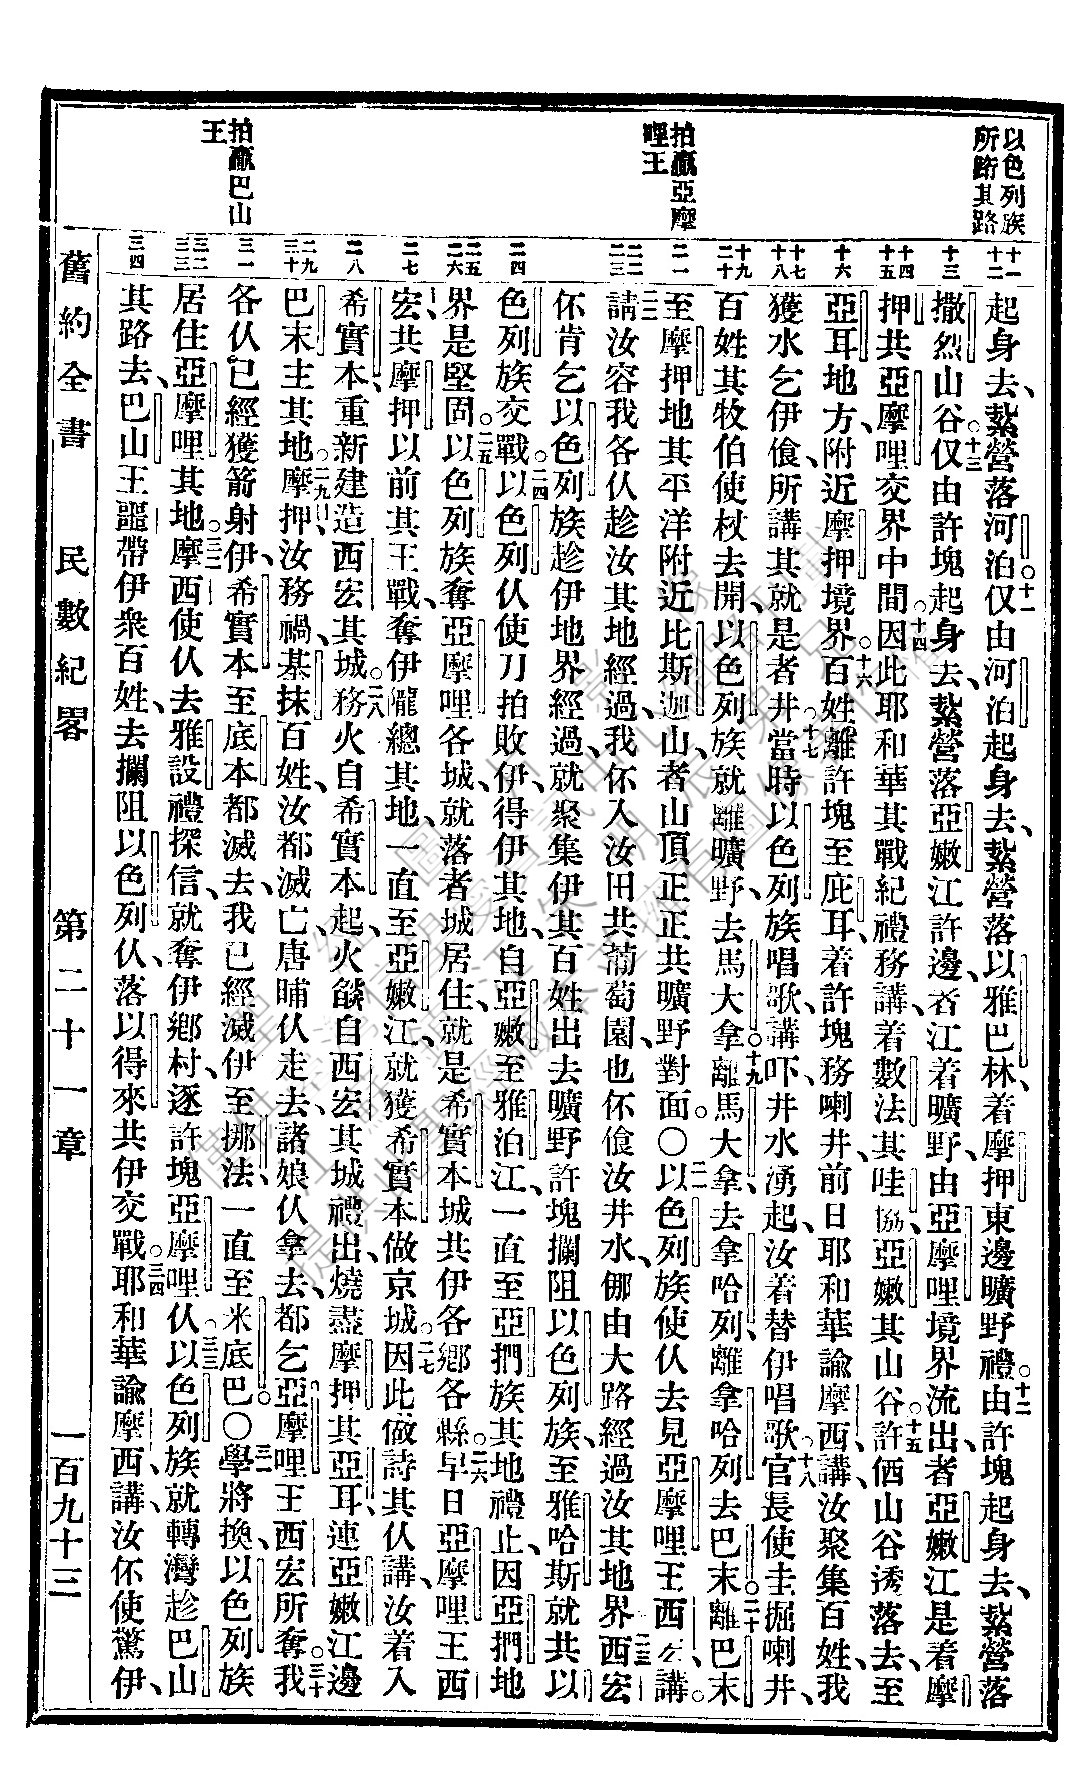 以色列族
所踄其路
拍贏亞摩
哩王
拍贏巴山
王
十一
十二
十三
十四
十五
十六
十七
十八
十九
二十
二一
二二
二三
二四
二五
二六
二七
二八
二九
三十
三一
三二
三三
三四
起身去、紮營落河泊。十一仅由河泊起身去、紮營落以雅巴林、着摩押東邊曠野禮。十二由許塊起身去、紮營落
撒烈山谷。十三仅由許塊起身去、紮營落亞嫩江許邊、者江着曠野由亞摩哩境界流出、者亞嫩江是着摩
押共亞摩哩交界中間。十四因此耶和華其戰紀禮務講、着數法其哇協、亞嫩其山谷、十五許㑚山谷透落去、至
亞耳地方、附近摩押境界。十六百姓離許塊至庇耳、着許塊務喇井、前日耶和華諭摩西講、汝聚集百姓、我
獲水乞伊飡、所講其就是者井。十七當時以色列族唱歌講、吓、井水湧起、汝着替伊唱歌、十八官長使圭掘喇井、
百姓其牧伯使杖去開、以色列族就離曠野、去馬大拿。十九離馬大拿、去拿哈列、離拿哈列、去巴末、二十離巴末、
至摩押地其平洋附近比斯迦山、者山頂正正共曠野對面。〇二一以色列族使仈去見亞摩哩王西宏講。
二二請汝容我各仈趁汝其地經過、我伓入汝田共葡萄園、也伓飡汝井水、㑚由大路經過汝其地界、二三西宏
伓肯乞以色列族趁伊地界經過、就聚集伊其百姓出去曠野許塊攔阻以色列族、至雅哈斯就共以
色列族交戰。二四以色列仈使刀拍敗伊、得伊其地、自亞嫩至雅泊江、一直至亞捫族其地禮止、因亞捫地
界是堅固。二五以色列族奪亞摩哩各城、就落者城居住、就是希實本城共伊各鄉各縣。二六早日亞摩哩王西
宏、共摩押以前其王戰、奪伊儱總其地、一直至亞嫩江、就獲希實本做京城。二七因此做詩其仈講、汝着入
希實本、重新建造西宏其城。二八務火自希實本起、火燄自西宏其城禮出、燒盡摩押其亞耳、連亞嫩江邊
巴末主其地。二九摩押、汝務禍、基抹百姓、汝都滅亡、唐晡仈走去、諸娘仈拿去、都乞亞摩哩王西宏所奪。三十我
各仈已經獲箭射伊、希實本至底本都滅去、我已經滅伊至挪法、一直至米底巴。〇三一學將換、以色列族
居住亞摩哩其地。三二摩西使仈去雅設禮探信、就奪伊鄉村、逐許塊亞摩哩仈。三三以色列族就轉灣趁巴山
其路去、巴山王噩帶伊衆百姓、去攔阻以色列仈、落以得來共伊交戰。三四耶和華諭摩西講、汝伓使驚伊、
舊約全書　民數紀畧　第二十一章　一百九十三